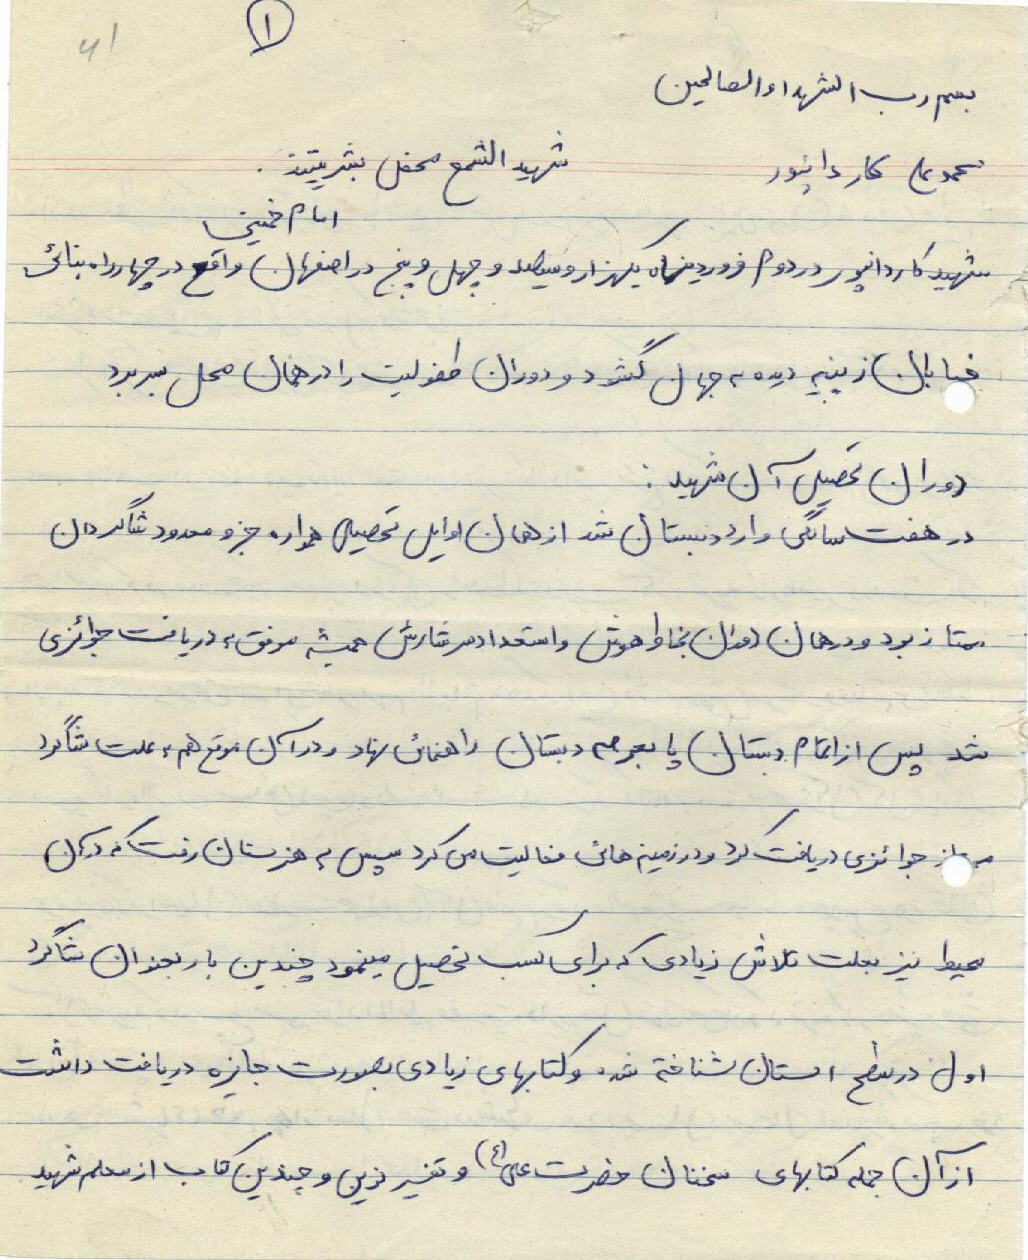 ۱
۴۱
بسم رب الشهداء والصالحین
محمود کاردانپور شهید الشمع محفل بشریتند .
امام خمینی
شهید کاردانپور در دوم فروردینماه یکهزار و سیصد و چهل و پنج در اصفهان واقع در چهارراه بنائی
خیابان زینبیه دیده به جهان گشود و دوران طفولیت را در همان محل بسر برد
دوران تحصیلی آن شهید :
در هفت سالگی وارد دبستان شد از همان اوایل تحصیلی همواره جزو معدود شاگردان
ممتاز بود و در همان دوران بخاطر هوش و استعداد سرشارش همیشه موفق به دریافت جوائزی
شد پس از اتمام دبستان پا بعرصه دبستان راهنمائی نهاد و در آن موقع هم به علت شاگرد
ممتاز جوائزی دریافت کرد و در زمینه هائی فعالیت می کرد سپس به هنرستان رفت که در آن
محیط نیز بعلت تلاش زیادی که برای کسب تحصیل مینمود چندین بار بعنوان شاگرد
اول در سطح استان شناخته شد و کتابهای زیادی بصورت جایزه دریافت داشت
از آن جمله کتابهای سخنان حضرت علی (ع) و تفسیر نوین و چندین کتاب از معلم شهید